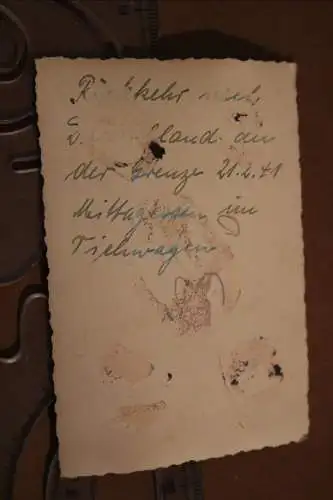 Rückkehr nach
land an
der Grenze 21.2.41
Mittagessen im
Viehwagen